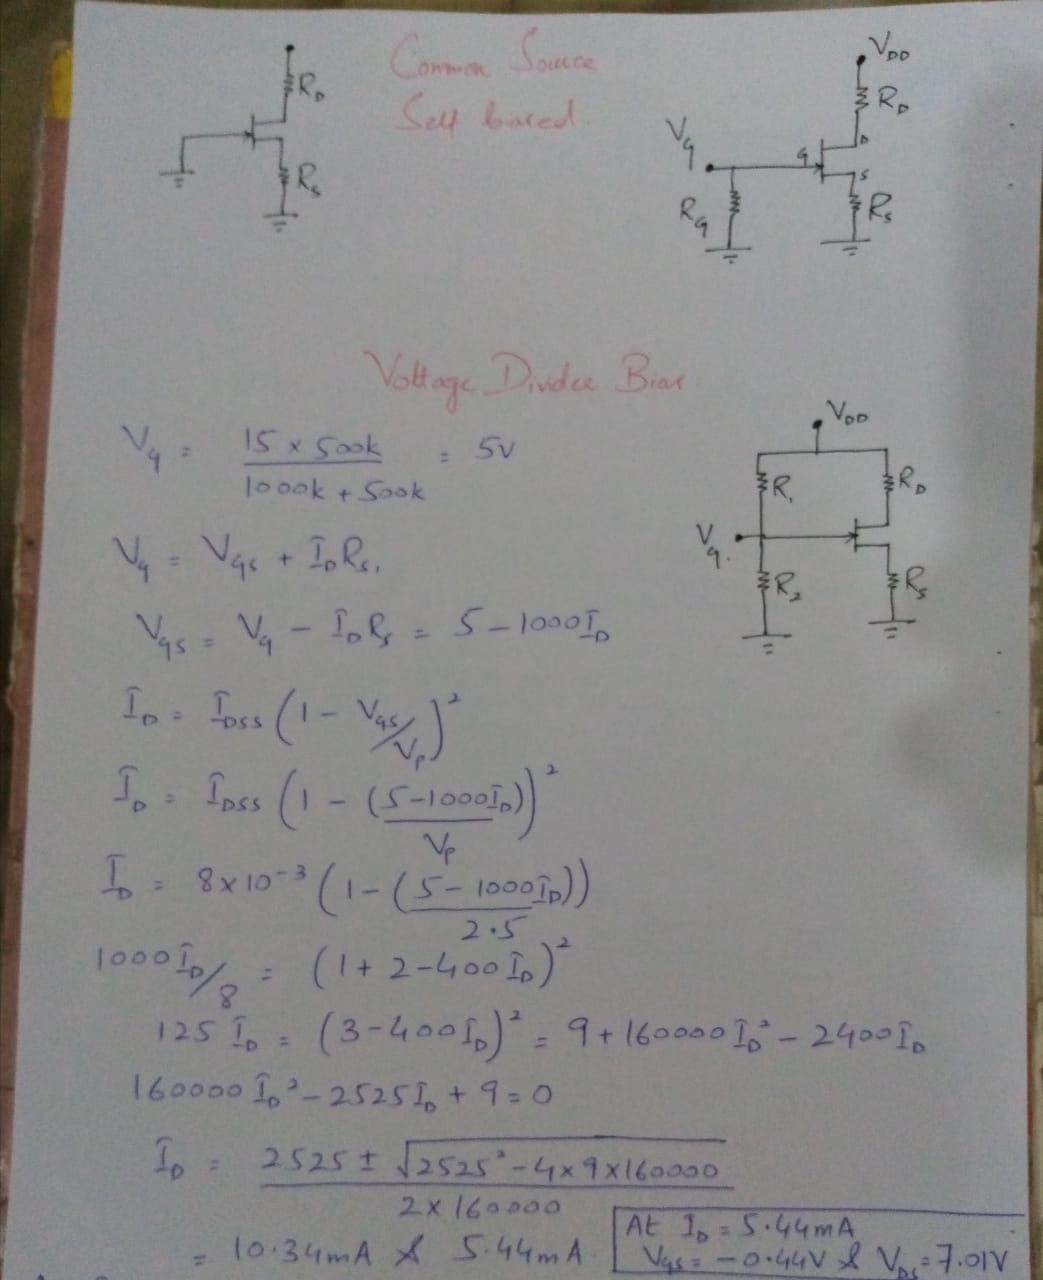 Common Source
Self biased
R_D
R_S
V_DD
R_D
V_G
G
D
S
R_G
R_S
Voltage Divider Bias
V_G = 15 x 500k / 1000k + 500k = 5V
V_G = V_GS + I_D R_S,
V_GS = V_G - I_D R_S = 5 - 1000I_D
V_DD
R_1
R_D
V_G.
R_2
R_S
I_D = I_DSS (1 - V_GS/V_P)²
I_D = I_DSS (1 - (5-1000I_D)/V_P)²
I_D = 8x10⁻³ (1-(5-1000I_D)/2.5)
1000I_D/8 = (1+2-400I_D)²
125 I_D = (3-400I_D)² = 9+160000I_D² - 2400I_D
160000 I_D² - 2525I_D + 9 = 0
I_D = 2525 ± √2525² - 4x9x160000 / 2x160000
= 10.34mA & 5.44mA
At I_D = 5.44mA
V_GS = -0.44V & V_DS = 7.01V